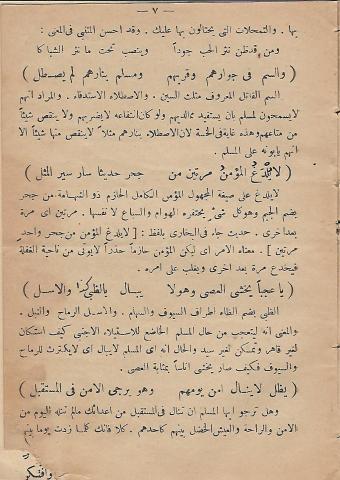 — ٧ —
بها . والتمحلات التى يحتالون بها عليك . وقد احسن المتنبى فى المعنى :
ومن قد ظن نثر الحب جوداً وينصب تحت ما نثر الشباكا
( والسم فى جوارهم وقربهم ومسلم بنارهم لم يصطل )
السم القاتل المعروف مثلث السين . والاصطلاء الاستدفاء . والمراد انهم
لايسمحون لمسلم بان يستفيد ممالديهم ولو كان انتفاعه لايضرهم ولا ينقص شيئاً
من متاعهم وهذه غاية فى الخسة لان الاصطلاء بنارهم مثلا لاينقص منها شيئاً الا
انهم يأبونه على المسلم .
( لايلدغ المؤمن مرتين من جحر حديثا سار سير المثل )
لايلدغ على صيغة المجهول المؤمن الكامل الحازم ذو الشهامة من جحر
بضم الجيم وهو كل شئ يحتفره الهوام والسباع لا نفسها . مرتين اى مرة
بعد اخرى . حديث جاء فى البخارى بلفظ : [ لايلدغ المؤمن من جحر واحد
مرتين ] معناه الامر اى ليكن المؤمن حازماً حذراً لايؤتى من ناحية الغفلة
فيخدع مرة بعد اخرى ويغلب على امره .
( يا عجباً يخشى العصى وهولا يبال بالظبى كذا والاسل )
الظبى بضم الظاء اطراف السيوف والسهام . والاسل الرماح والنبل .
والمعنى انه ليتعجب من حال المسلم الخاضع للاستيلاء الاجنبى كيف استكان
لغير قاهر وتمسكن لغير سيد والحال انه اى المسلم لايبال اى لايكترث للرماح
والسيوف فكيف صار يخشى اناساً بمثابة العصى .
( يظل لاينال امن يومهم وهو يرجى الامن فى المستقبل )
وهل ترجو ايها المسلم ان تنال فى المستقبل من اعدائك مالم تنله اليوم من
الامن والراحة والعيش الخضل بينهم كاحدهم . كلا فانك كلما زدت يوما بينهم
وافتكر